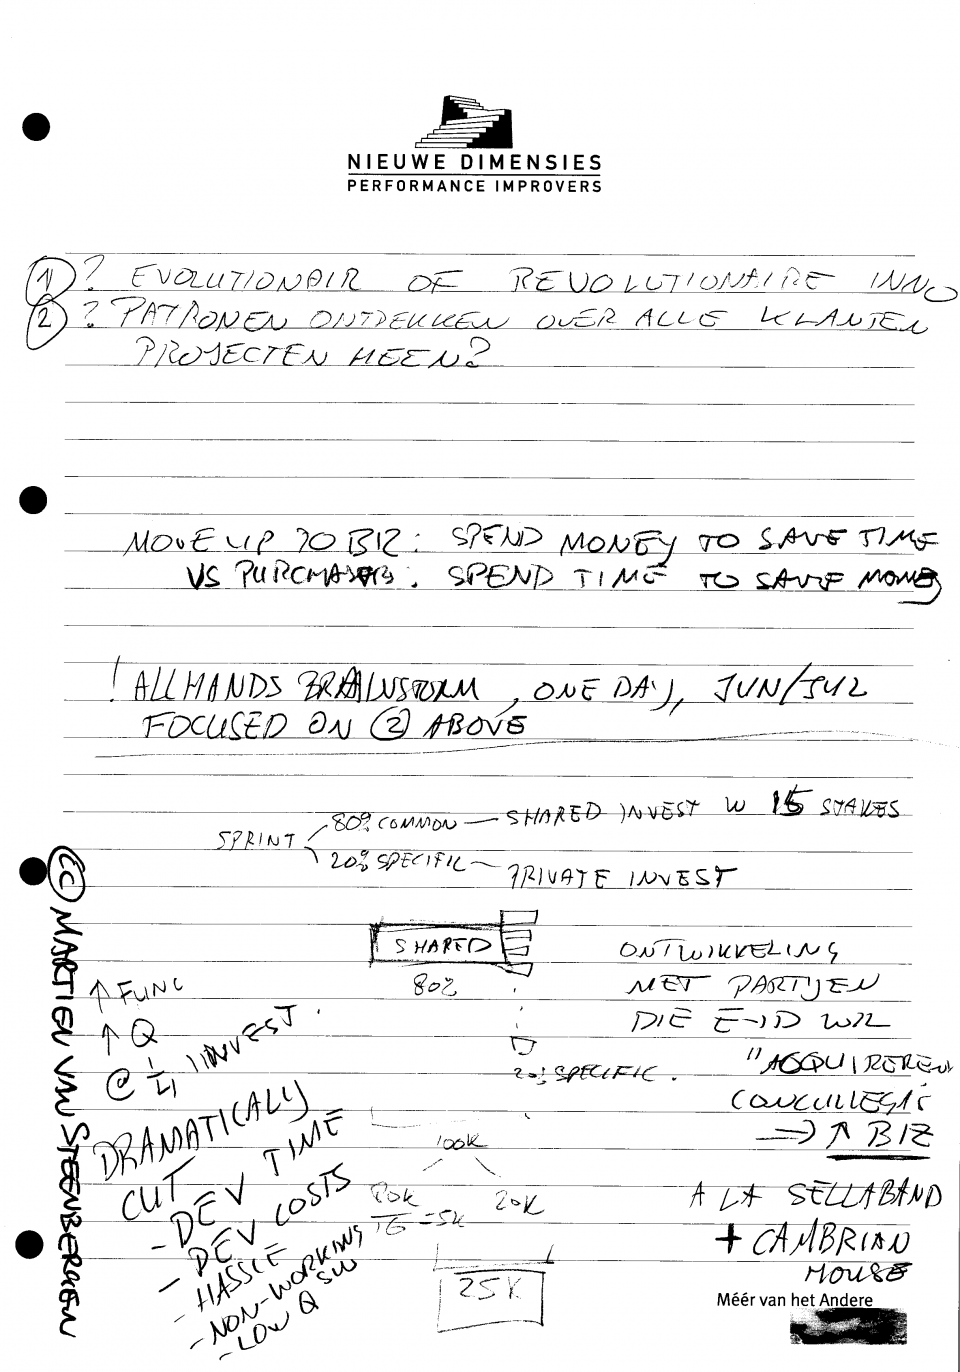 NIEUWE DIMENSIES
PERFORMANCE IMPROVERS
1) ? EVOLUTIONAIR OF REVOLUTIONAIRE INNO
2 ? PATRONEN ONTDEKKEN OVER ALLE KLANTEN
PROJECTEN HEEN?
MOVE UP TO BIZ: SPEND MONEY TO SAVE TIME
VS PURCHASERS: SPEND TIME TO SAVE MONEY
! ALL HANDS BRAINSTORM, ONE DAY, JUN/JUL
FOCUSED ON (2) ABOVE
SPRINT
80% COMMON — SHARED INVEST W 15 STAKES
20% SPECIFIC — PRIVATE INVEST
SHARED
80%
20% SPECIFIC.
ONTWIKKELING
MET PARTIJEN
DIE E-ID WIL
"ACQUIREREN
CONCULLEGA'S
=> ↑ BIZ
A LA SELLABAND
+ CAMBRIAN
HOUSE
↑ FUNC
↑ Q
@ 1/4 INVEST.
DRAMATICALLY
CUT
- DEV TIME
- DEV COSTS
- HASSLE
- NON-WORKING SW
- LOW Q
100K
80K 20K
16 = 5K
25K
(CC) MARTIEN VAN STEENBERGEN
Méér van het Andere